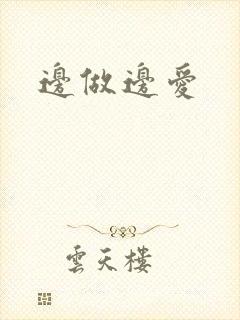 邊做邊愛
雲天樓